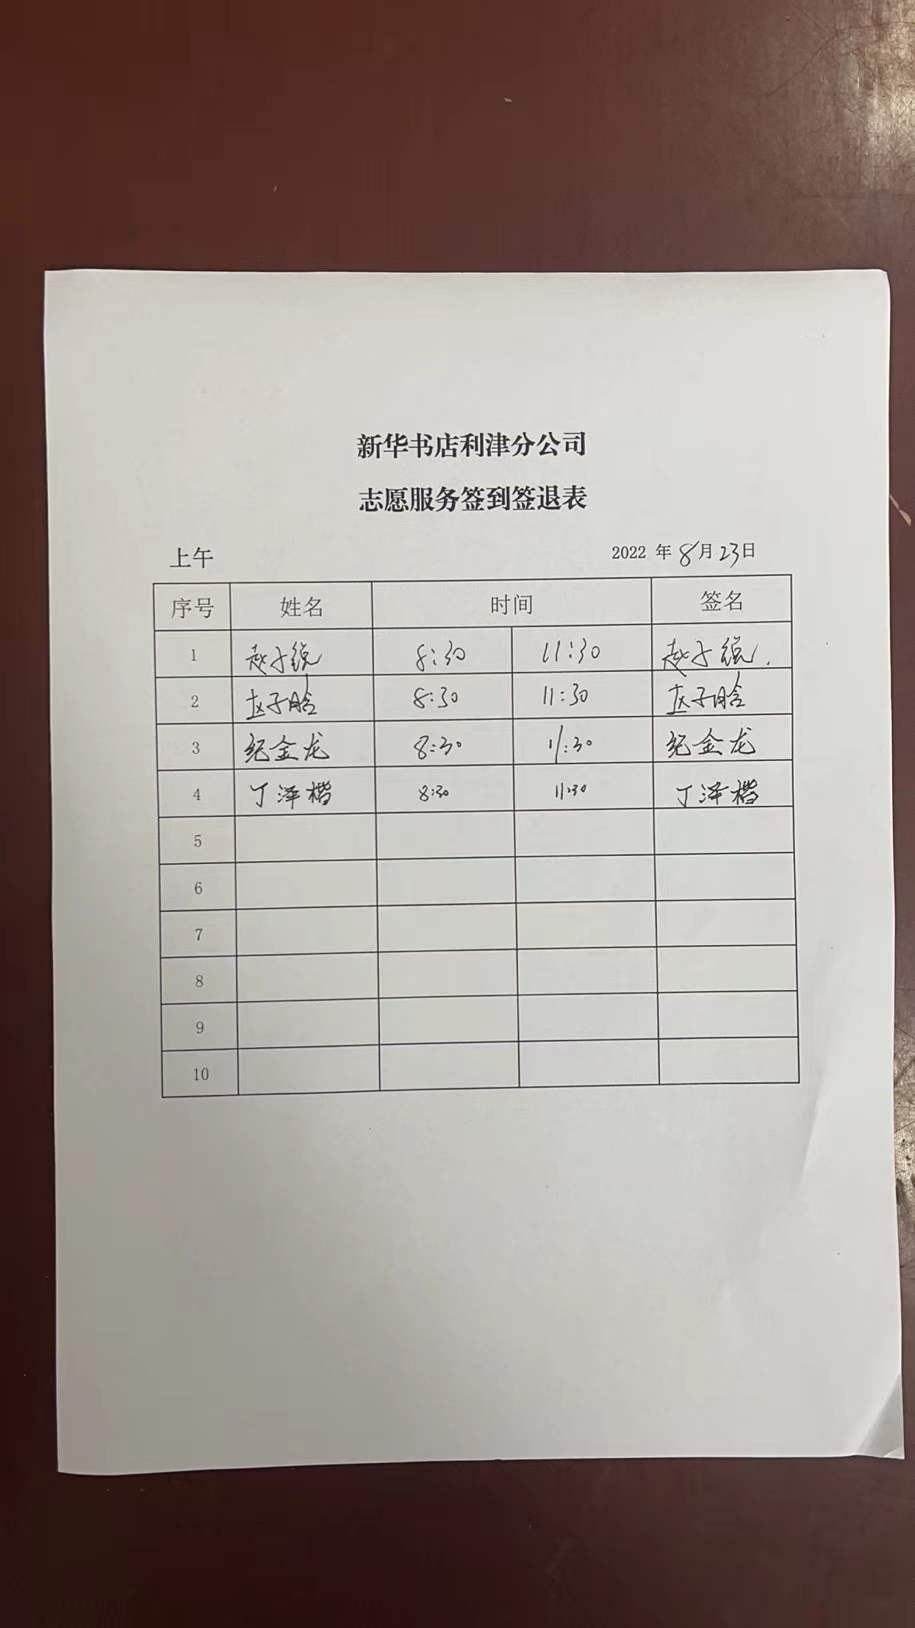 新华书店利津分公司
志愿服务签到签退表
上午 2022 年 8月23日
序号 姓名 时间 签名
1 赵子锐 8:30 11:30 赵子锐.
2 8:30 11:30
3 纪金龙 8:30 11:30 纪金龙
4 丁泽楷 8:30 11:30 丁泽楷
5
6
7
8
9
10